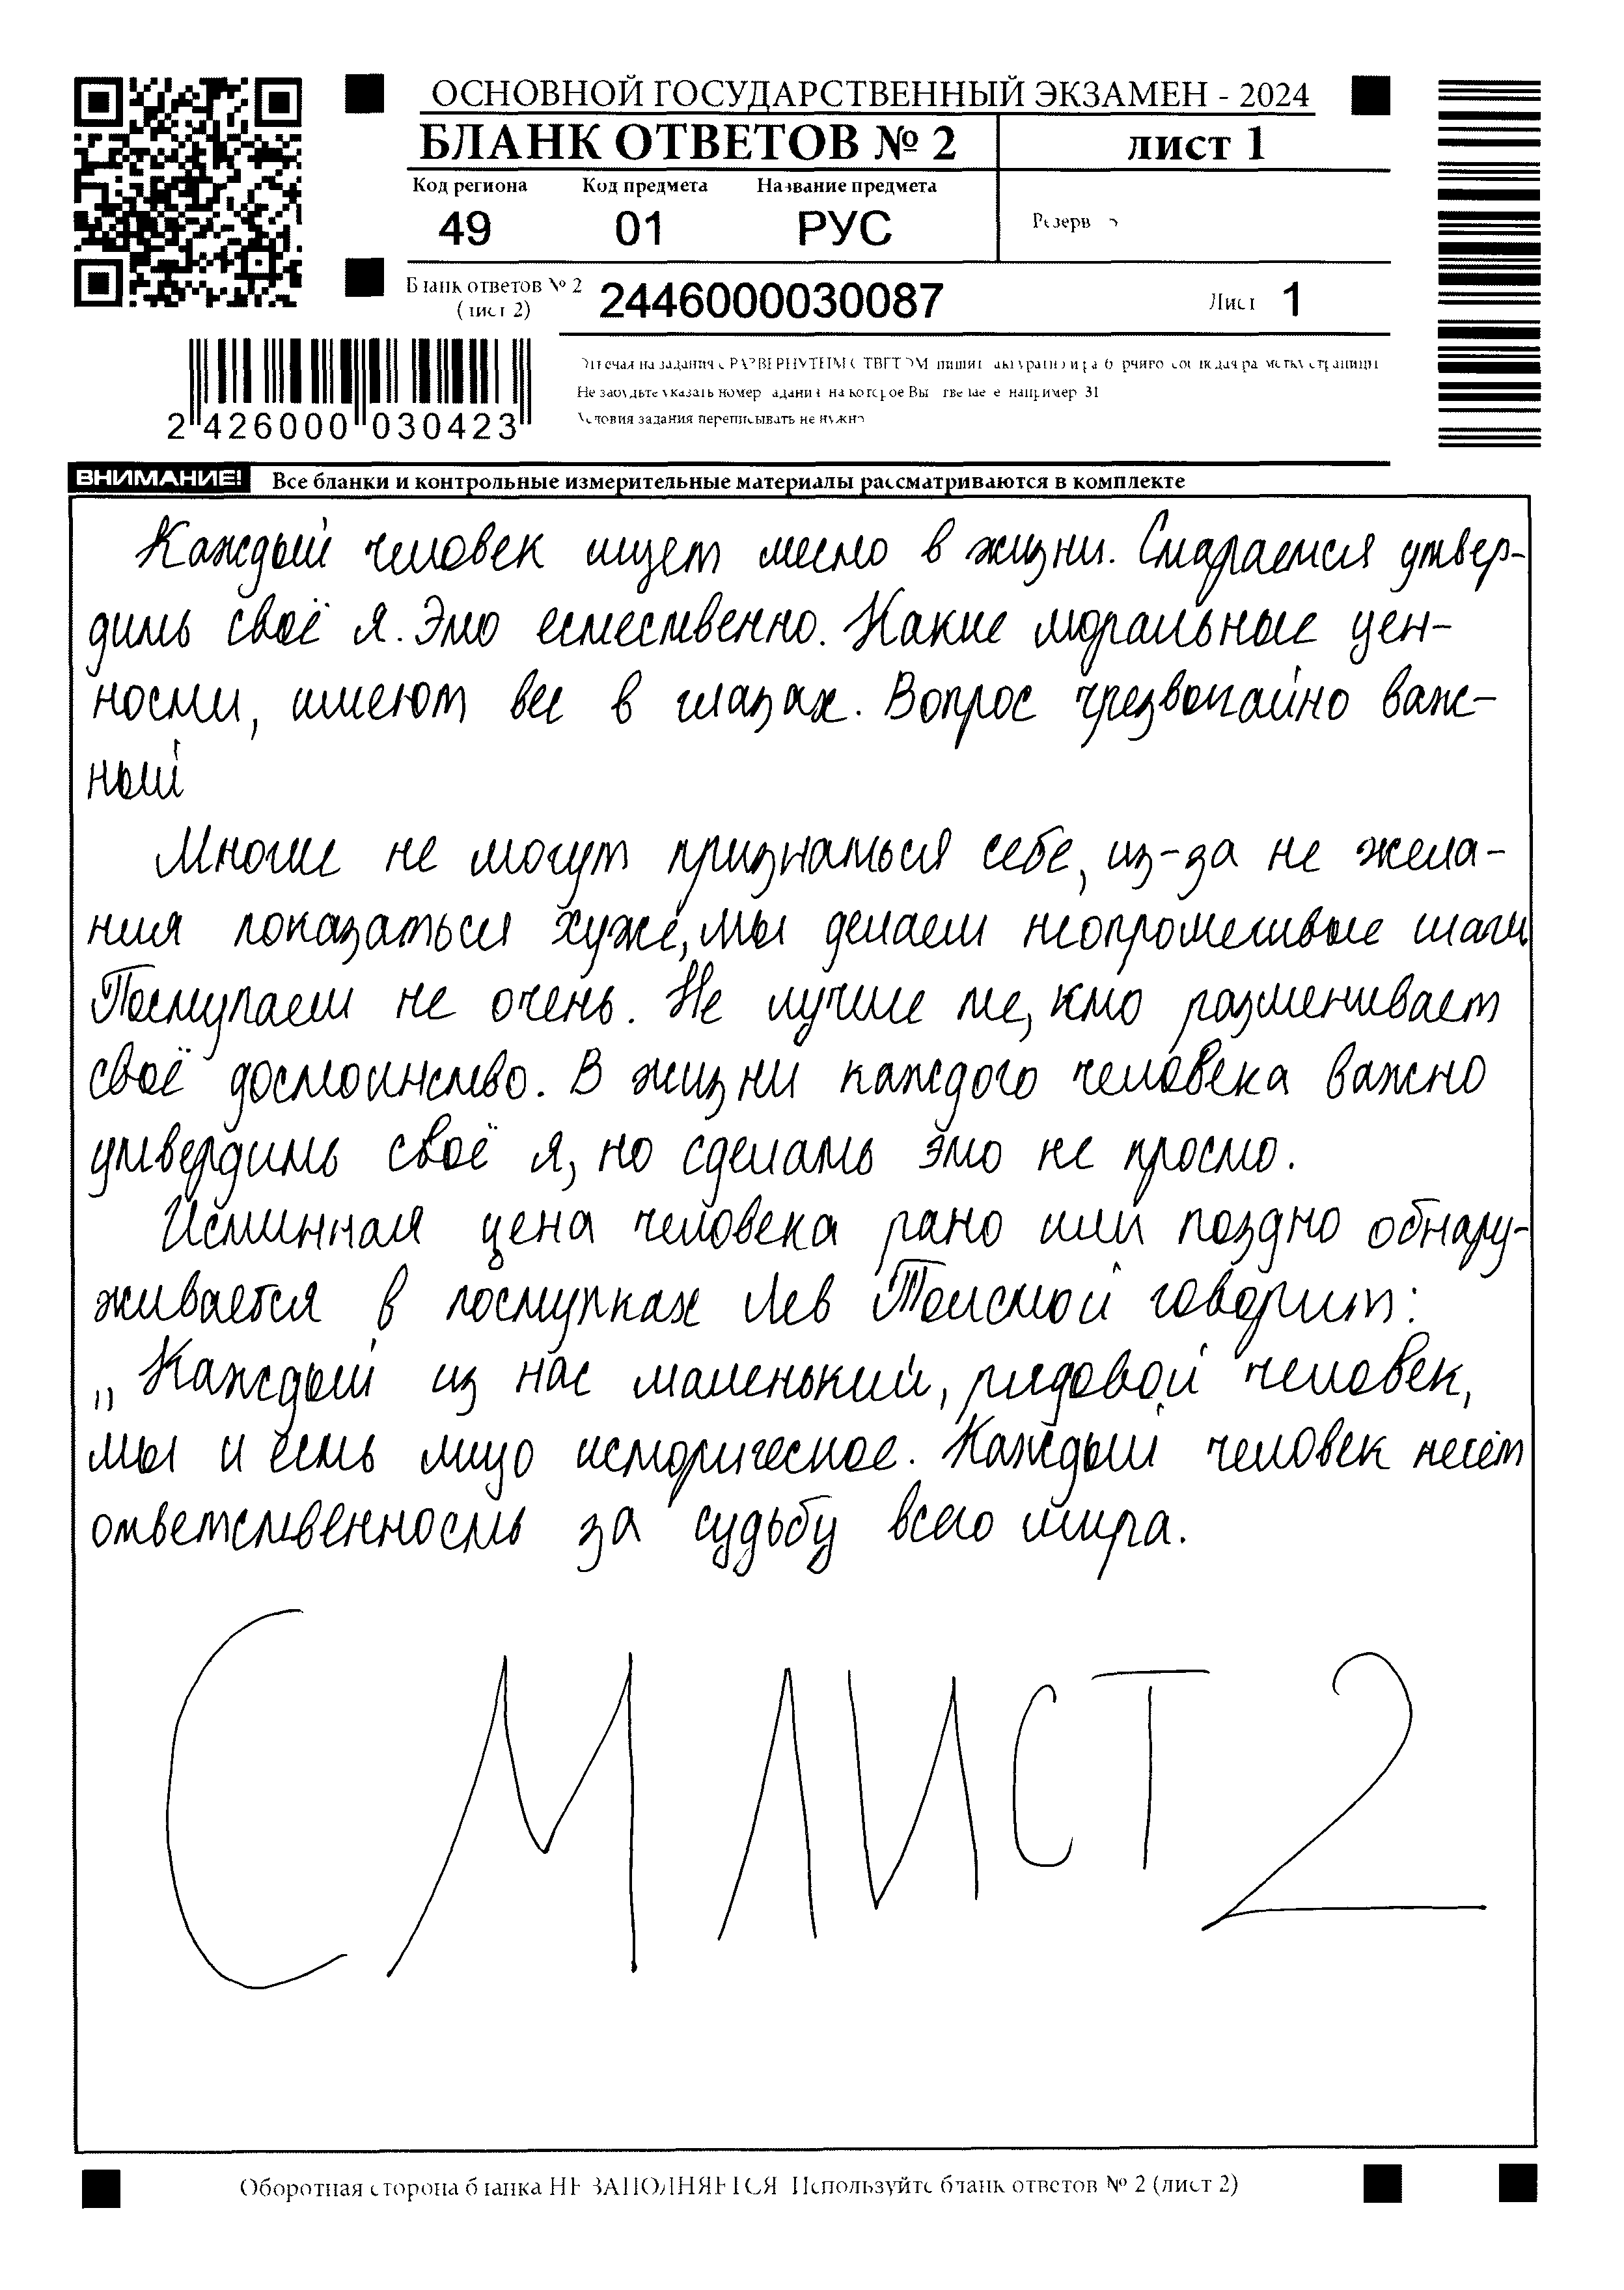 ОСНОВНОЙ ГОСУДАРСТВЕННЫЙ ЭКЗАМЕН - 2024
БЛАНК ОТВЕТОВ № 2
лист 1
Код региона Код предмета Название предмета
49 01 РУС
Резерв
Бланк ответов № 2
(лист 2)
2446000030087
Лист 1
2 426000 030423
Отвечая на задания с РАЗВЕРНУТЫМ ОТВЕТОМ пишите аккуратно и разборчиво соблюдая разметку страницы
Не забудьте указать номер задания на которое Вы отвечаете например 31
Условия задания переписывать не нужно
ВНИМАНИЕ! Все бланки и контрольные измерительные материалы рассматриваются в комплекте
Каждый человек ищет место в жизни. Стараемся утвер-
дить своё я. Это естественно. Какие моральные цен-
ности, имеют вес в глазах. Вопрос чрезвычайно важ-
ный
Многие не могут признаться себе, из-за не жела-
ния показаться хуже, мы делаем неопрометивые шаги
Поступаем не очень. Не лучше те, кто разменивает
своё достоинство. В жизни каждого человека важно
утвердить своё я, но сделать это не просто.
Истинная цена человека рано или поздно обнару-
живается в поступках Лев Толстой говорит:
„Каждый из нас маленький, рядовой человек,
мы и есть лицо историческое. Каждый человек несёт
ответственность за судьбу всего мира.
СМ ЛИСТ 2
Оборотная сторона бланка НЕ ЗАПОЛНЯЕТСЯ Используйте бланк ответов № 2 (лист 2)